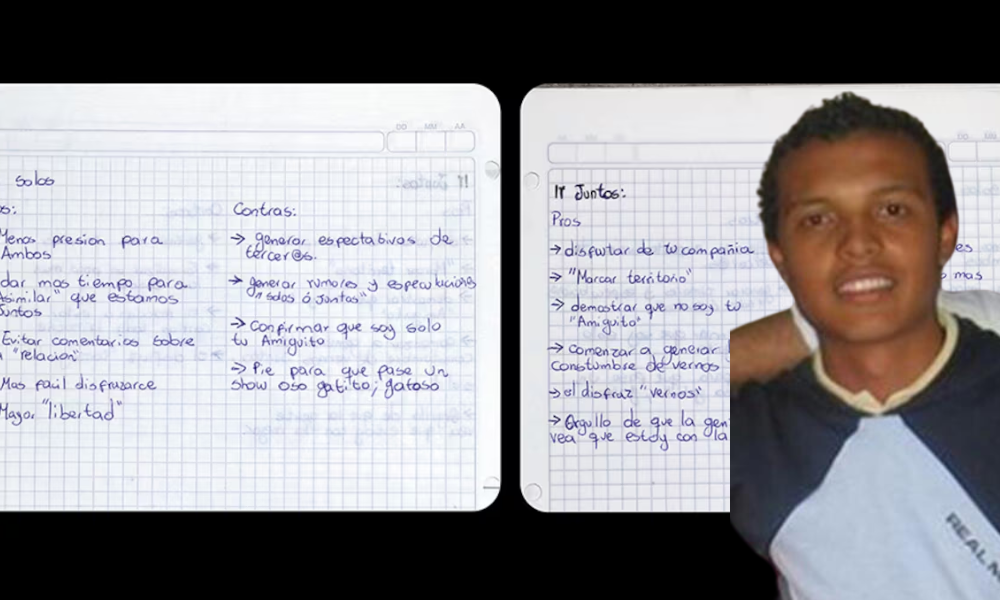 solos
os:
Menos presion para
Ambos
dar mas tiempo para
"asimilar" que estamos
Juntos
Evitar comentarios sobre
"relación"
Mas facil disfrazarce
Mayor "libertad"
Contras:
→ generar espectativas de
tercer@s.
→ generar rumores y especulaciones
"solos ó juntos"
→ Confirmar que soy solo
tu Amiguito
→ Pie para que pase un
show oso gatito, gatoso
Ir Juntos:
Pros
→ disfrutar de tu compañia
→ "Marcar territorio"
→ demostrar que no soy tu
"Amiguito"
→ comenzar a generar
constumbre de vernos
→ el disfraz "vernos"
→ Orgullo de que la gen
vea que estoy con la
es
mas
REAL M